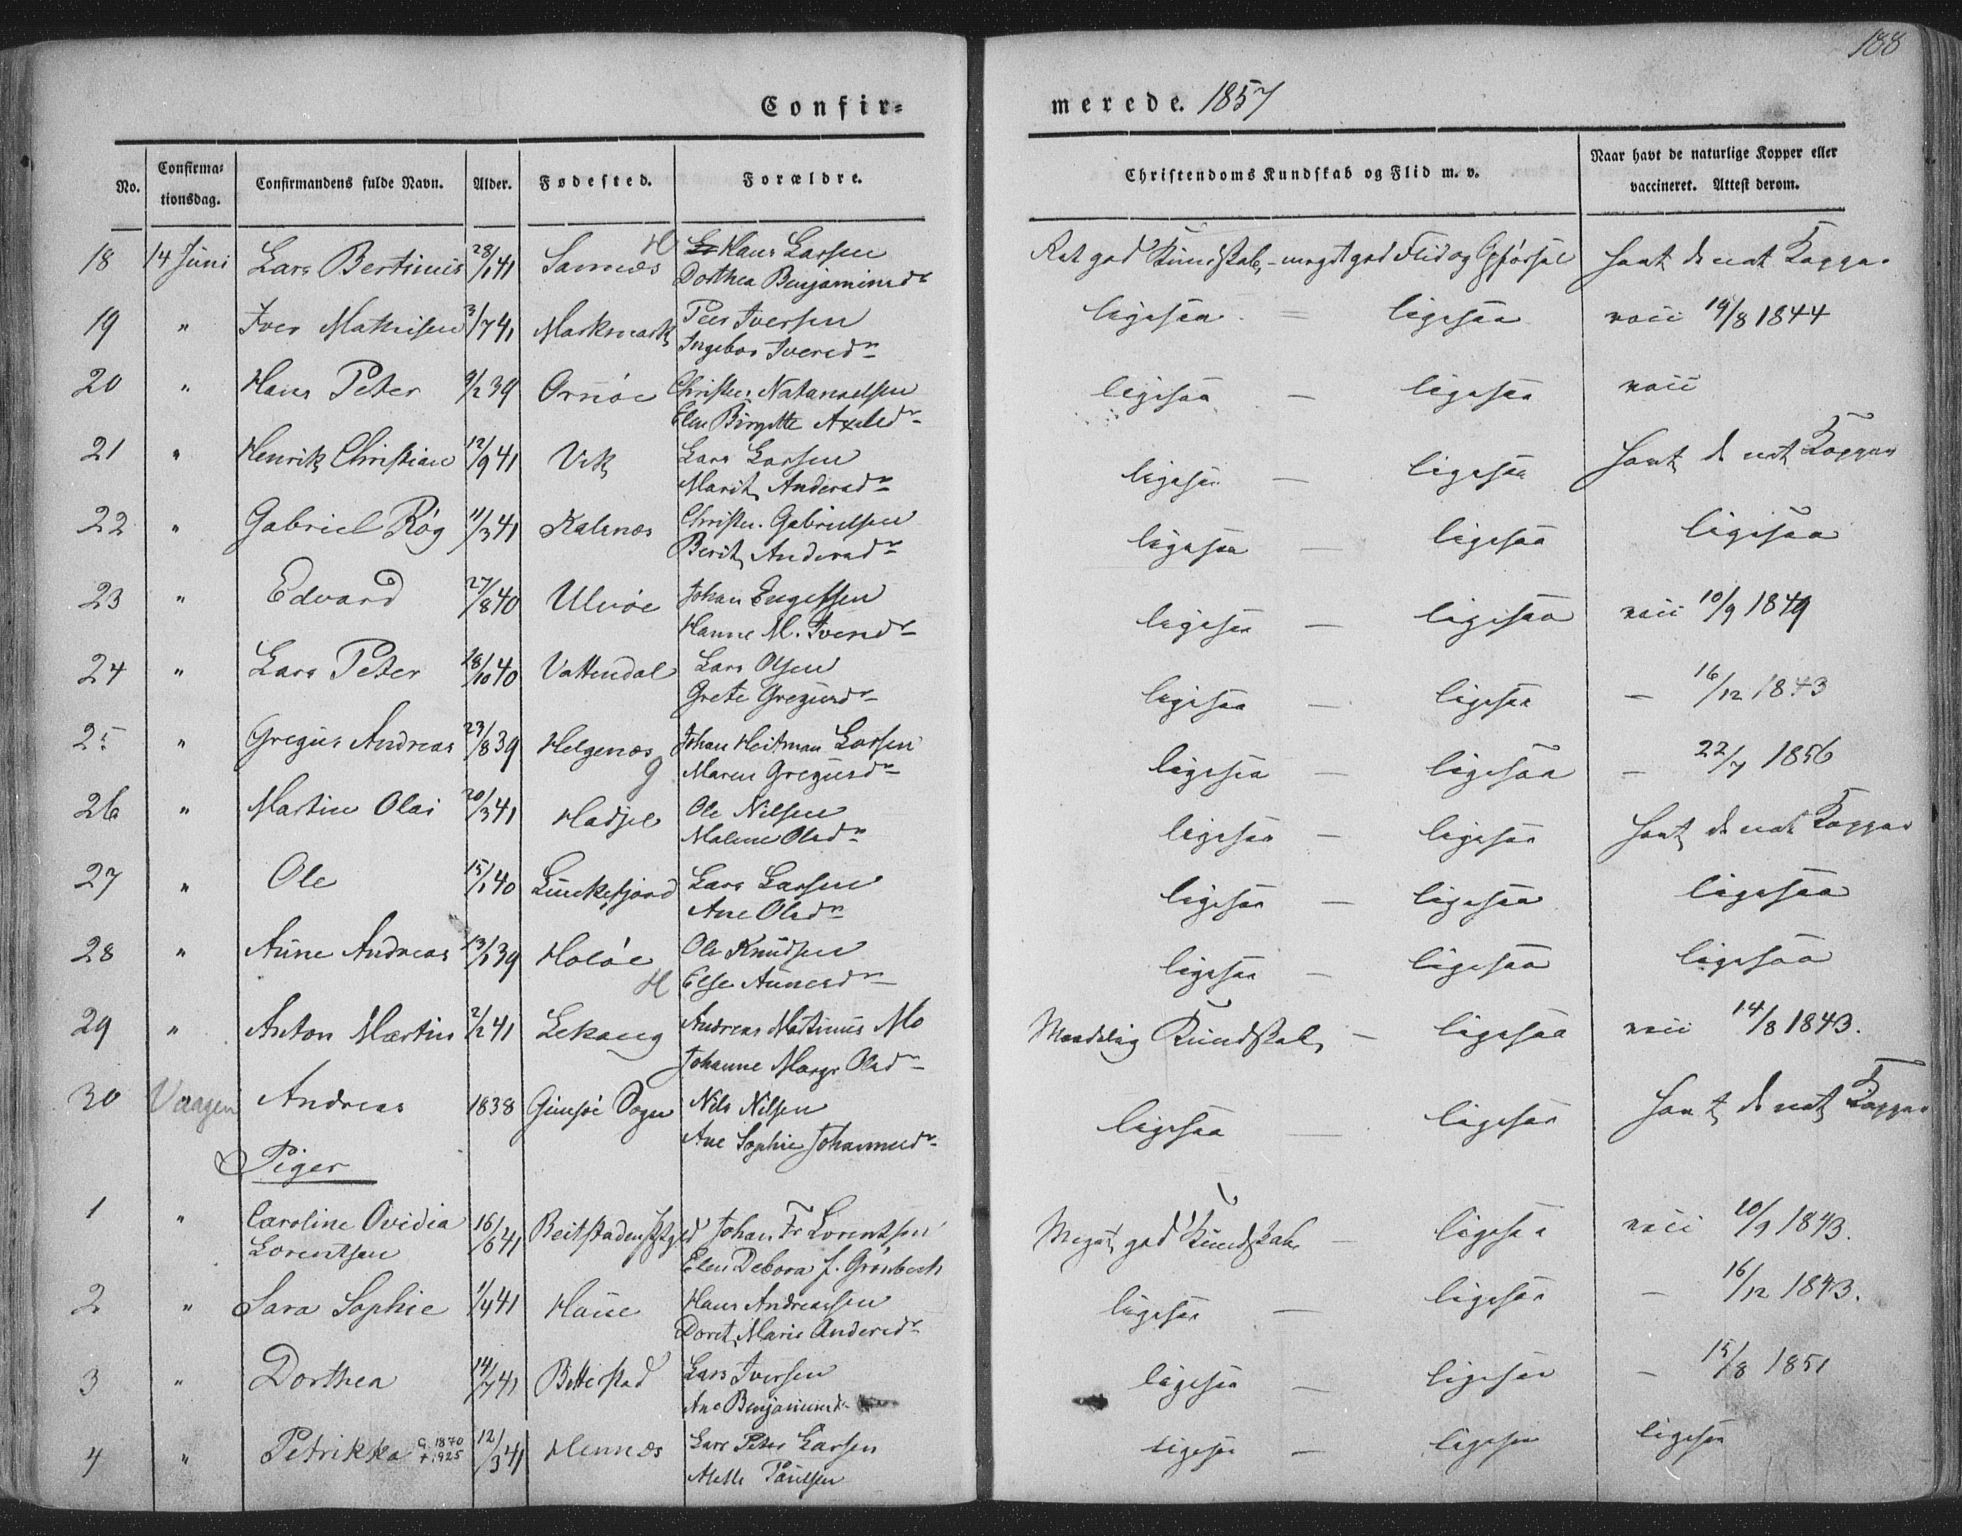 188
Confir-
merede. 1857
No.
Confirma-
tionsdag.
Confirmandens fulde Navn.
Alder.
Fødested.
Forældre.
Christendoms Kundskab og Flid m. v.
Naar havt de naturlige Kopper eller
vaccineret. Attest derom.
18 14 Juni Lars Bertinus 28/1 41 Sannæs H Hans Larsen
Dorthea Benjaminsdr
Ret god Kundskab - meget god Flid og Opførsel havt de nat Kopper
19 " Iver Mathisen 3/7 41 Marksmark Peer Iversen
Ingebor Iversdr
ligesaa = ligesaa vacc 19/8 1844
20 " Hans Peter 9/2 39 Ornøe Christen Natanaelsen
Elen Birgitte Axelsdr
ligesaa - ligesaa vacc
21 " Henrik Christian 12/9 41 Vik Lars Larsen
Marit Andersdr
ligesaa - ligesaa havt de nat Kopper
22 " Gabriel Røg 11/3 41 Kalsnæs Christen Gabrielsen
Berit Andersdr
ligesaa - ligesaa ligesaa
23 " Edvard 27/8 40 Ulvøe Johan Engelsen
Hanne M. Iversdr
ligesaa - ligesaa vacc 10/9 1849
24 " Lars Peter 18/10 40 Vattendal Lars Olsen
Grete Gregusdr
ligesaa - ligesaa - 16/12 1843
25 " Gregus Andreas 23/8 39 Helgenæs Johan Heitman Larsen
G Maren Gregusdr
ligesaa - ligesaa - 22/7 1856
26 " Martin Olai 20/3 41 Hadsel Ole Nilsen
Malene Olsdr
ligesaa - ligesaa havt de nat Kopper
27 " Ole 15/1 40 Lunkefjord Lars Larsen
Ane Olsdr
ligesaa - ligesaa ligesaa
28 " Aune Andreas 13/1 39 Holøe Ole Knudsen
H Else Aunesdr
ligesaa - ligesaa ligesaa
29 " Anton Martin 2/2 41 Lekang Andreas Martinus Mo
Johanne Margr Olsdr
Maadelig Kundskab - ligesaa vacc 14/8 1843.
30 Vaagen Andreas 1838 Gimsøe Sogn Nils Nilsen
Ane Sophie Johannesdr
ligesaa - ligesaa havt de nat Kopper
Piger
1 " Caroline Ovidia 16/6 41 Beitstadens Johan Fr Lorentsen
Lorentsen Elen Debora f. Grønbech
Meget god Kundskab - ligesaa vacc 10/9 1843.
2 " Sara Sophie 1/4 41 Haue Hans Andreassen
Doret Marie Andersdr
ligesaa - ligesaa - 16/12 1843.
3 " Dorthea 14/7 41 Bitterstad Lars Iversen
Ane Benjaminsdr
ligesaa - ligesaa - 15/8 1851
4 " Petrikka G. 1870 12/3 41 Hennæs Lars Peter Larsen
+ 1925 Paulsen
ligesaa - ligesaa ligesaa